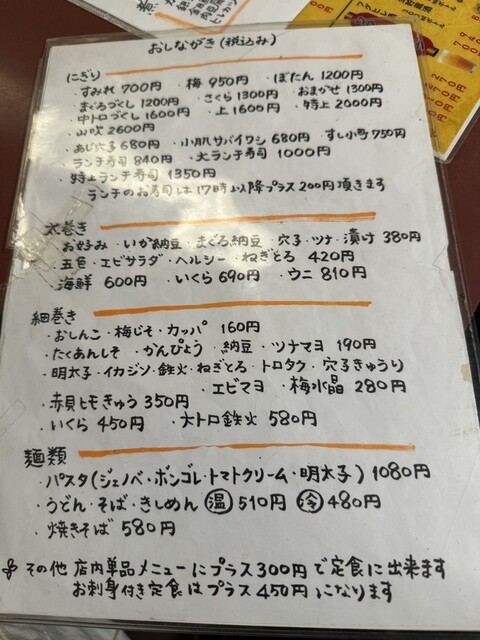 おしながき(税込み)
にぎり
・すみれ 700円 ・梅 950円 ・ぼたん 1200円
・まぐろづくし 1200円 ・さくら 1300円 ・おまかせ 1300円
・中トロづくし 1600円 ・上 1600円 ・特上 2000円
・山吹 2600円
・あじ穴子 680円 ・小肌サバイワシ 680円 ・すし小町 750円
・ランチ寿司 840円 ・大ランチ寿司 1000円
・特上ランチ寿司 1350円
ランチのお寿司は17時以降プラス200円頂きます
太巻き
・お好み・いか納豆・まぐろ納豆・穴子・ツナ・漬け 380円
・五色・エビサラダ・ヘルシー・ねぎとろ 420円
・海鮮 600円 ・いくら 690円 ・ウニ 810円
細巻き
・おしんこ・梅じそ・カッパ 160円
・たくあんしそ ・かんぴょう ・納豆 ・ツナマヨ 190円
・明太子・イカジソ・鉄火・ねぎとろ・トロタク・穴子きゅうり
・エビマヨ ・梅水晶 280円
・赤貝ヒモきゅう 350円
・いくら 450円 ・大トロ鉄火 580円
麺類
・パスタ(ジェノベ・ボンゴレ・トマトクリーム・明太子) 1080円
・うどん・そば・きしめん 温 510円 冷 480円
・焼きそば 580円
その他 店内単品メニューにプラス300円で定食に出来ます
お刺身付き定食はプラス450円になります